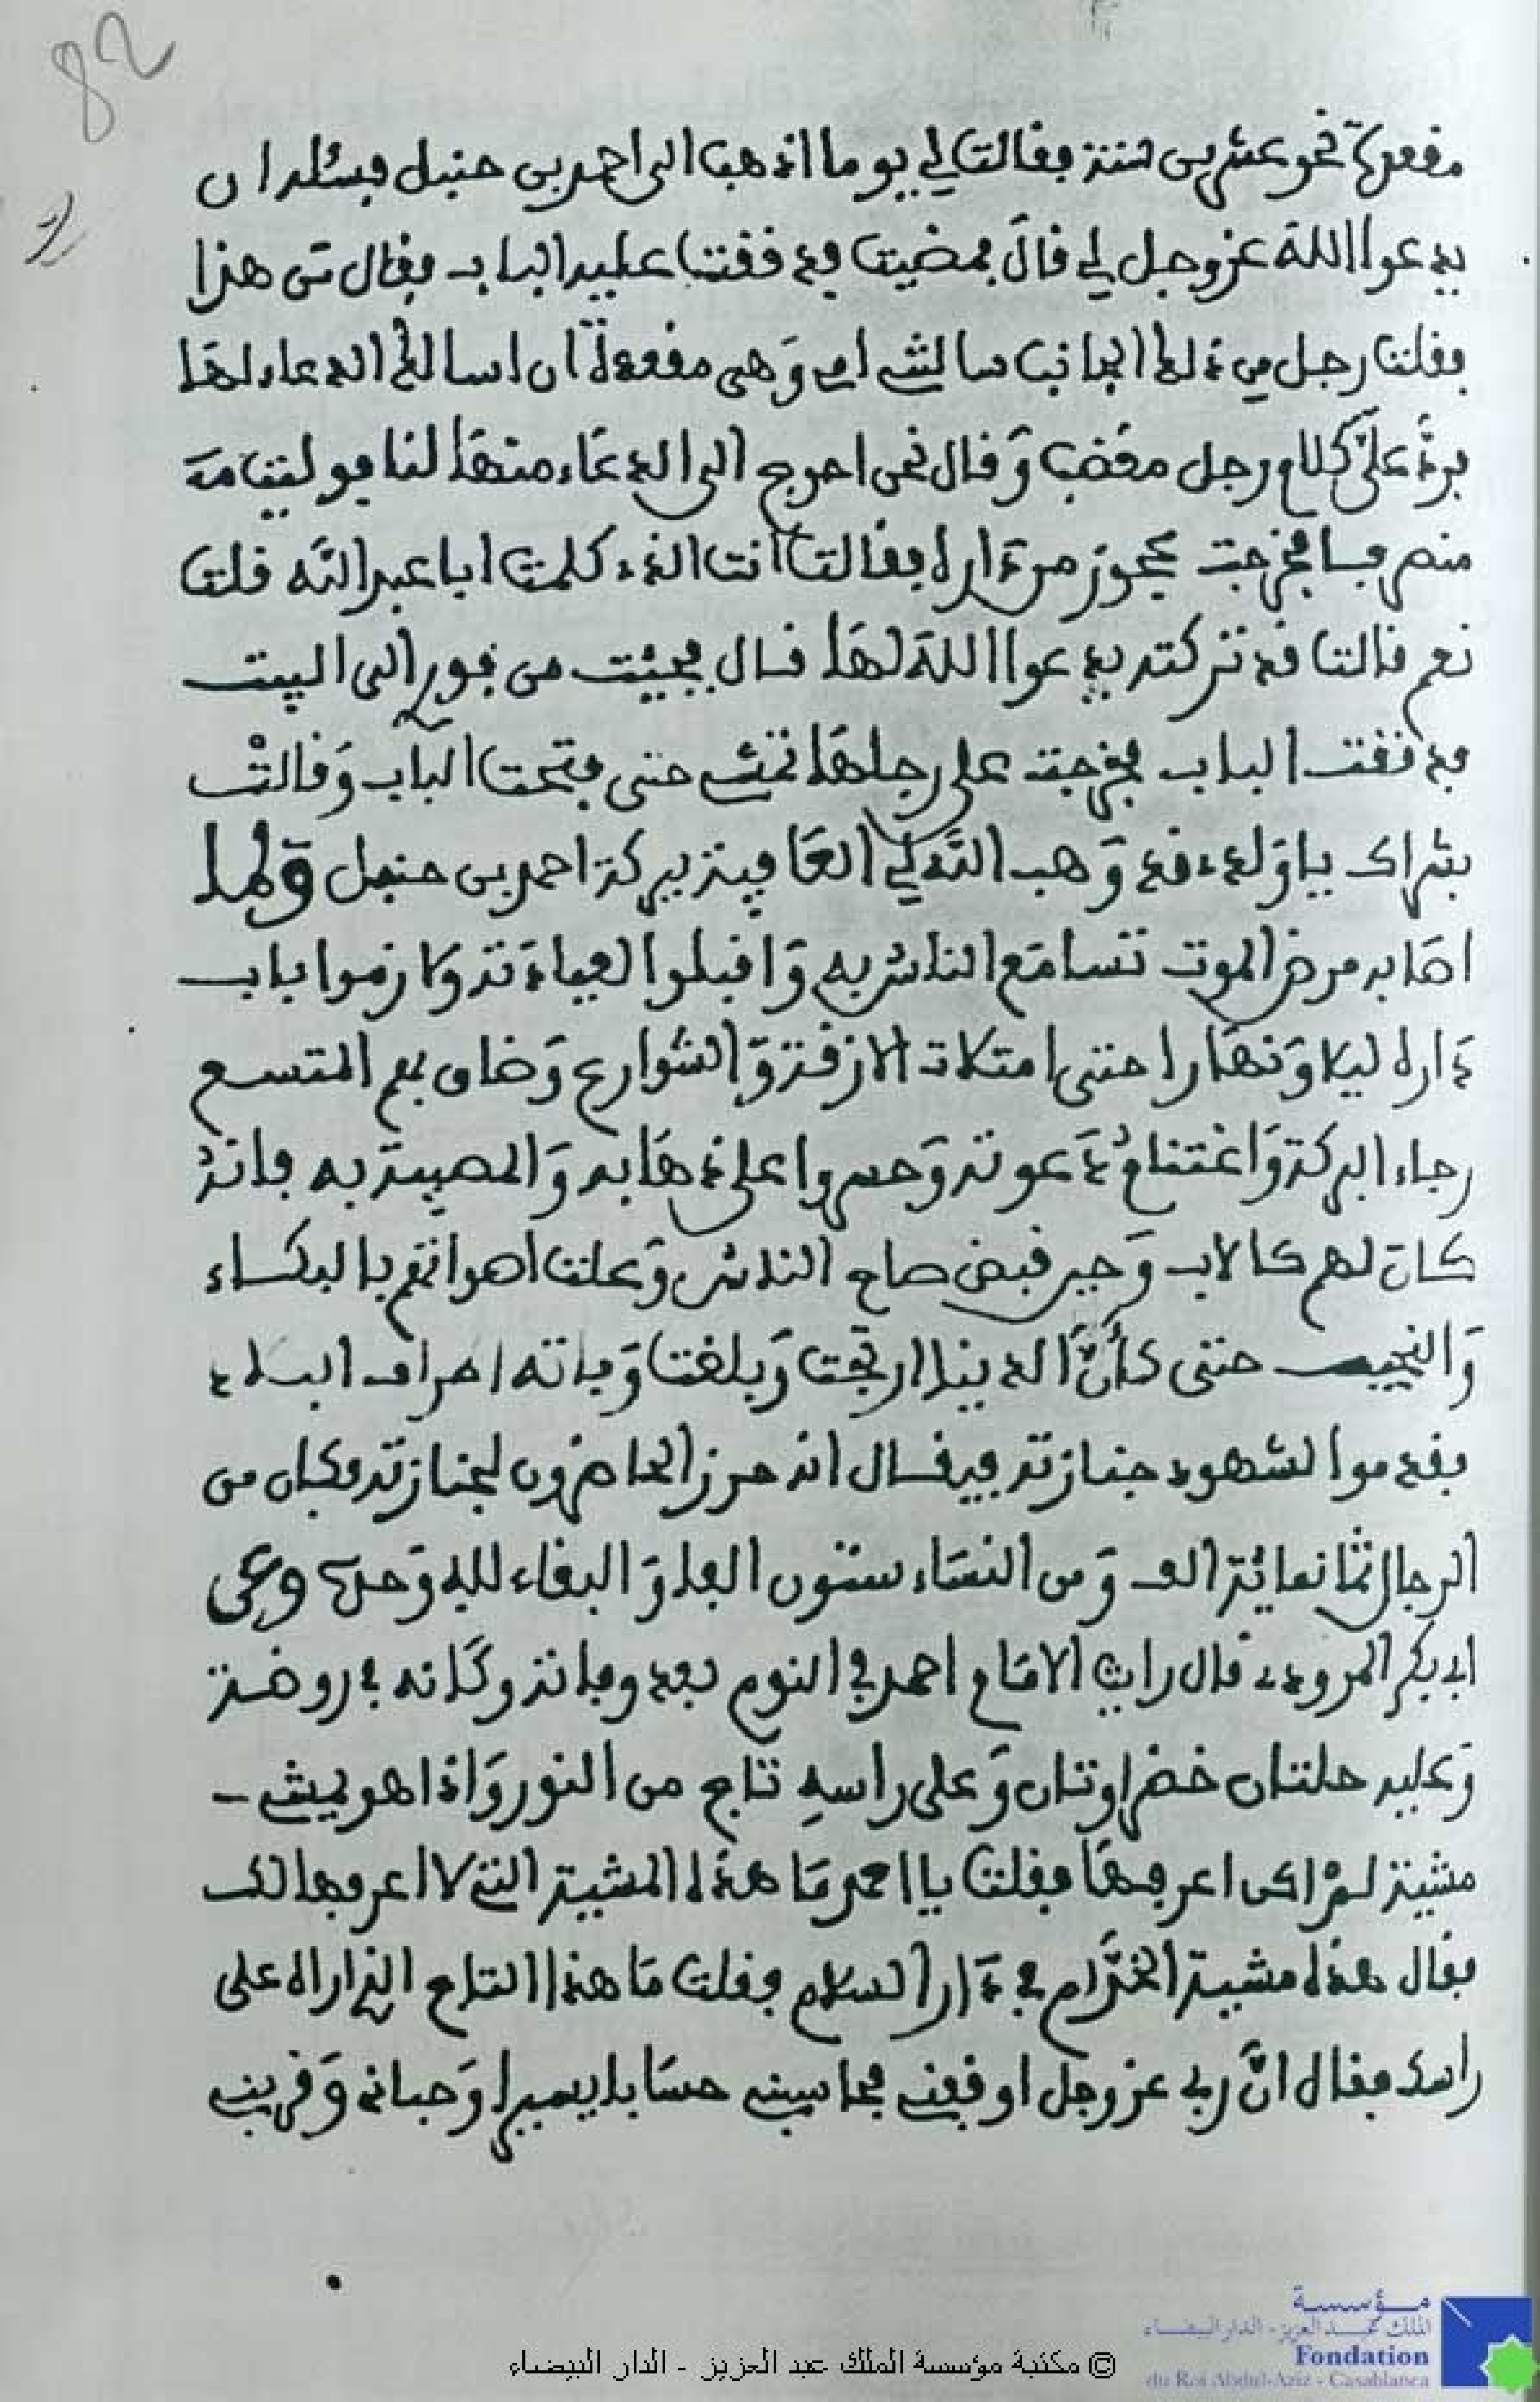 82
مقعدة نحو عشرين سنة فقالت لي يوما اذهب الى احمد بن حنبل فسئله ان
يدعوا الله عز وجل لي قال فمضيت فدققت عليه الباب فقال من هذا
فقلت رجل من ذلك الجانب سالتني امي وهي مقعدة ان اسالك الدعاء لها
فرد علي كلام رجل مغضب وقال نحن احوج الى الدعاء منها لنا فوليت
منصرفا فخرجت عجوز من داره فقالت انت الذي كلمت ابا عبد الله قلت
نعم قالت قد تركته يدعوا الله لها قال فجئت من فوري الى البيت
فدققت الباب فخرجت على رجلها تمشي حتى فتحت الباب وقالت
بشراك ياولدي قد وهب الله لي العافية ببركة احمد بن حنبل ولما
اصابه مرض الموت تسامع الناس به واقبلوا لعيادته ولازموا باب
داره ليلا ونهارا حتى امتلات الازقة والشوارع وضاق بهم المتسع
رجاء البركة واغتنام دعوته وحسروا على ذهابه والمصيبة به فانه
كان لهم كالاب وحين قبض صاح الناس وعلت اصواتهم بالبكاء
والنحيب حتى كأن الدنيا ارتجت وبلغت وفاته اطراف البلاد
فقدموا لشهود جنازته فيقال انه حرز الحاضرون لجنازته فكان من
الرجال ثمانمائة الف ومن النساء ستون الفا والبقاء لله وحده وعن
ابي بكر المروذي قال رايت الامام احمد في النوم بعد وفاته وكانه في روضة
وعليه حلتان خضراوتان وعلى راسه تاج من النور واذا هو يمشي
مشية لم اكن اعرفها فقلت يا احمد ما هذه المشية التي لا اعرفها لك
فقال هذه مشية الخدام في دار السلام فقلت ما هذا التاج الذي اراه على
راسك فقال ان ربي عز وجل اوقفني فحاسبني حسابا يسيرا وحباني وقربني
مؤسسة
الملك عبد العزيز - الدار البيضاء
Fondation
du Roi Abdul-Aziz - Casablanca
© مكتبة مؤسسة الملك عبد العزيز - الدار البيضاء